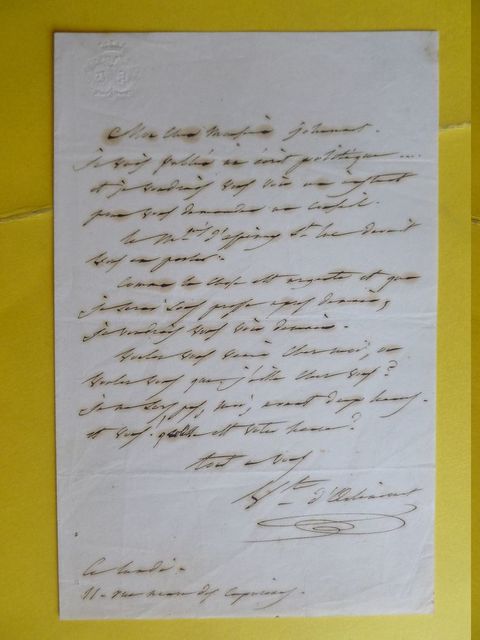 Mon cher Monsieur Johannet.
Je vais publier un écrit politique ...
et je voudrais vous voir un instant
pour vous demander un conseil.
le Mis d'Espinay St Luc devait
vous en parler.
Comme la chose est urgente et que
je serai sous presse après demain,
je voudrais vous voir demain.
Voulez vous venir chez moi, ou
voulez vous que j'aille chez vous?
Je ne sors pas, moi, avant deux heures.
et vous, quelle est votre heure?
tout à vous
Vte d'Arlincourt
Ce lundi.
11 - rue neuve des Capucines.